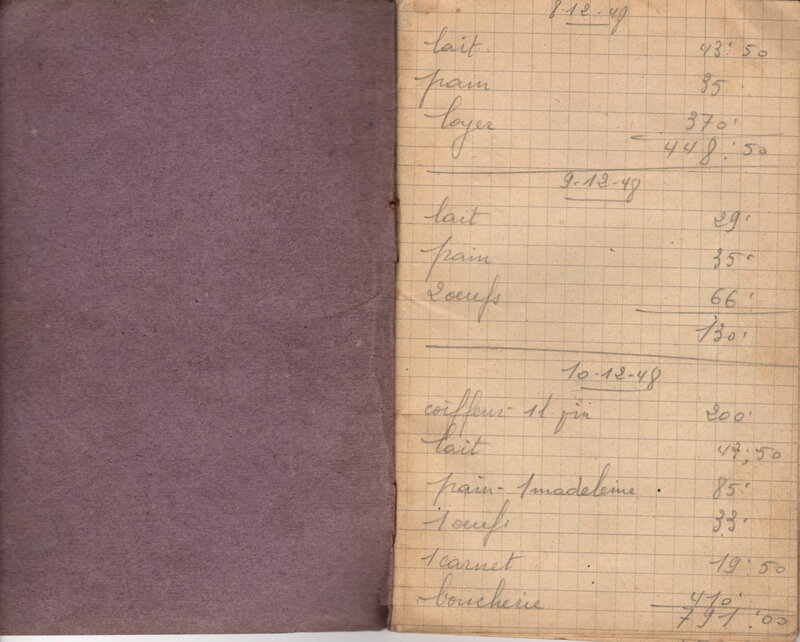 8-12-48
lait 43:50
pain 35
loyer 370'
448:50
9-12-48
lait 29'
pain 35'
2 oeufs 66'
130'
10-12-48
coiffeur- 1l. 200'
lait 43;50
pain- 1 madeleine. 85'
1 oeufs 33'
1 carnet 19:50
boucherie 410'
791:00